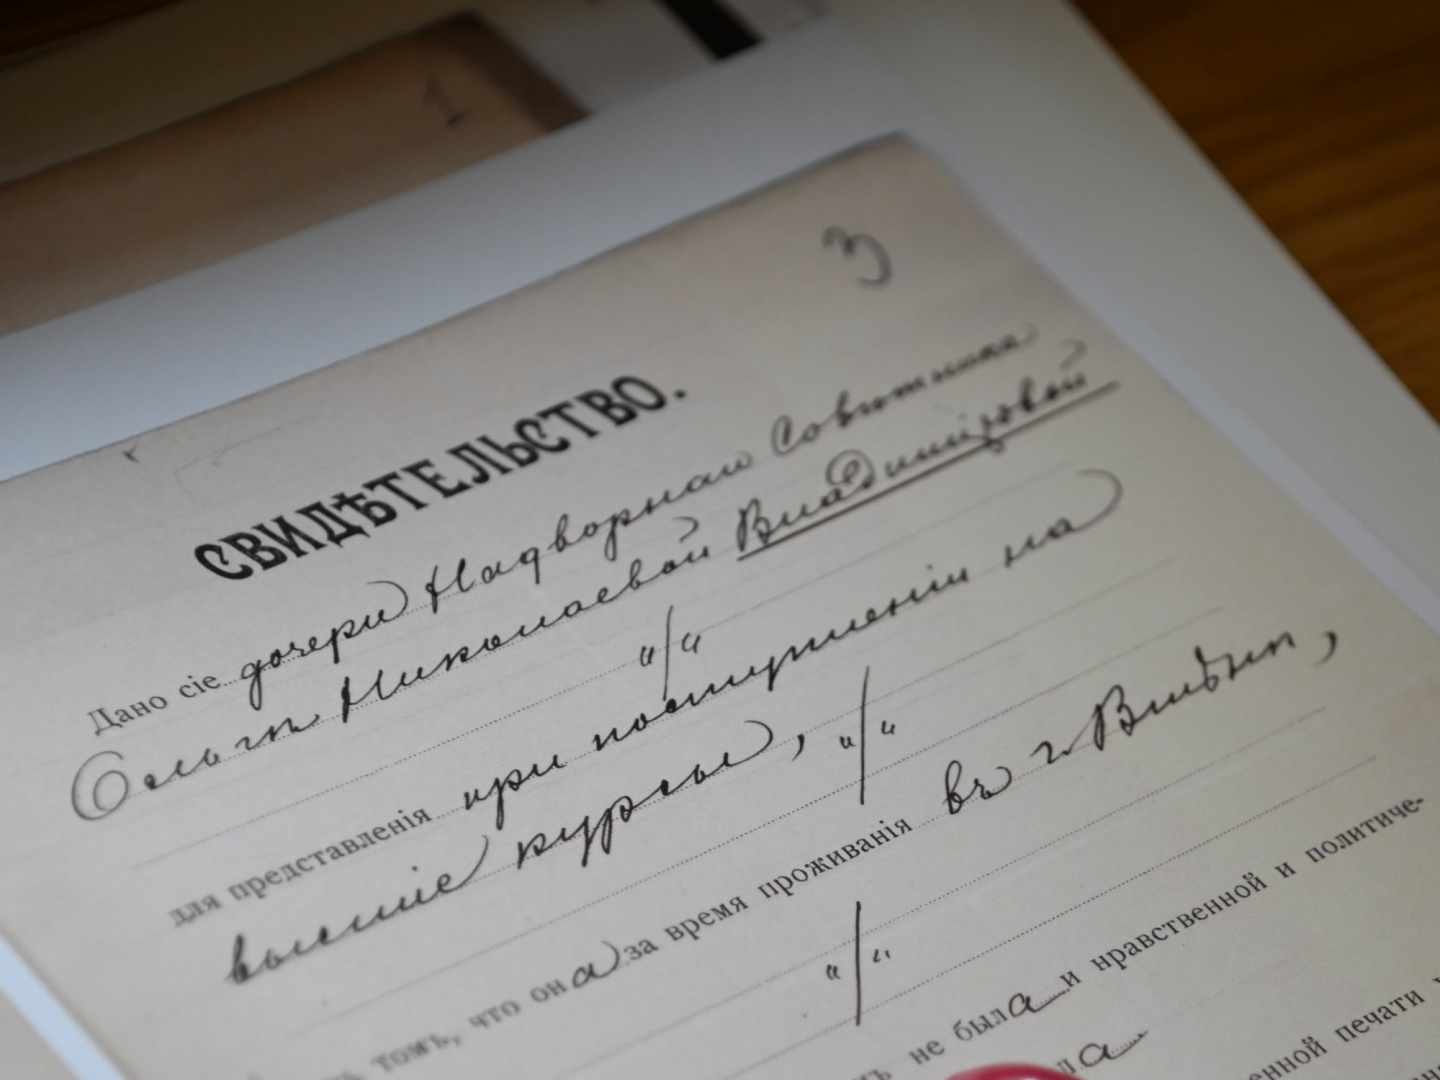 1
3
СВИДѢТЕЛЬСТВО.
Дано сіе дочери Надворнаго Совѣтника
Ольгѣ Николаевой
"/"
для представленія при поступленіи на
высшіе курсы, "/"
томъ, что она за время проживанія въ г. Вильнѣ,
"/"
не была и нравственной и политиче-
ла енной печати